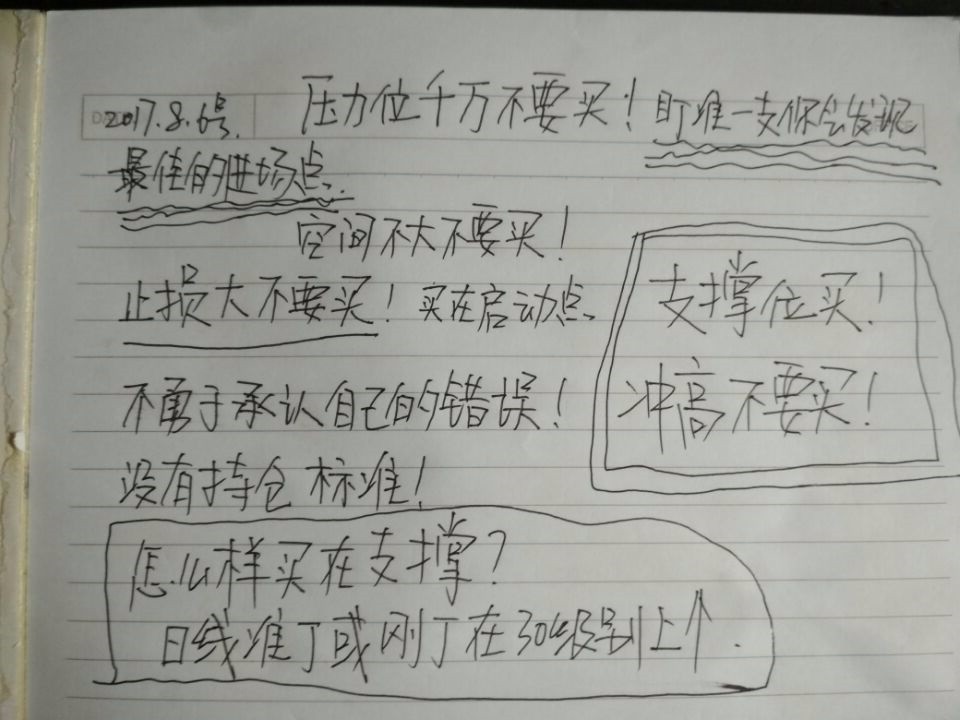 2017.8.6号.
压力位千万不要买！盯准一支你会发现
最佳的进场点.
空间不大不要买！
止损大不要买！买在启动点
支撑位买！
冲高不要买！
不勇于承认自己的错误！
没有持仓标准！
怎么样买在支撑？
日线准丁或刚丁在30级别上个.